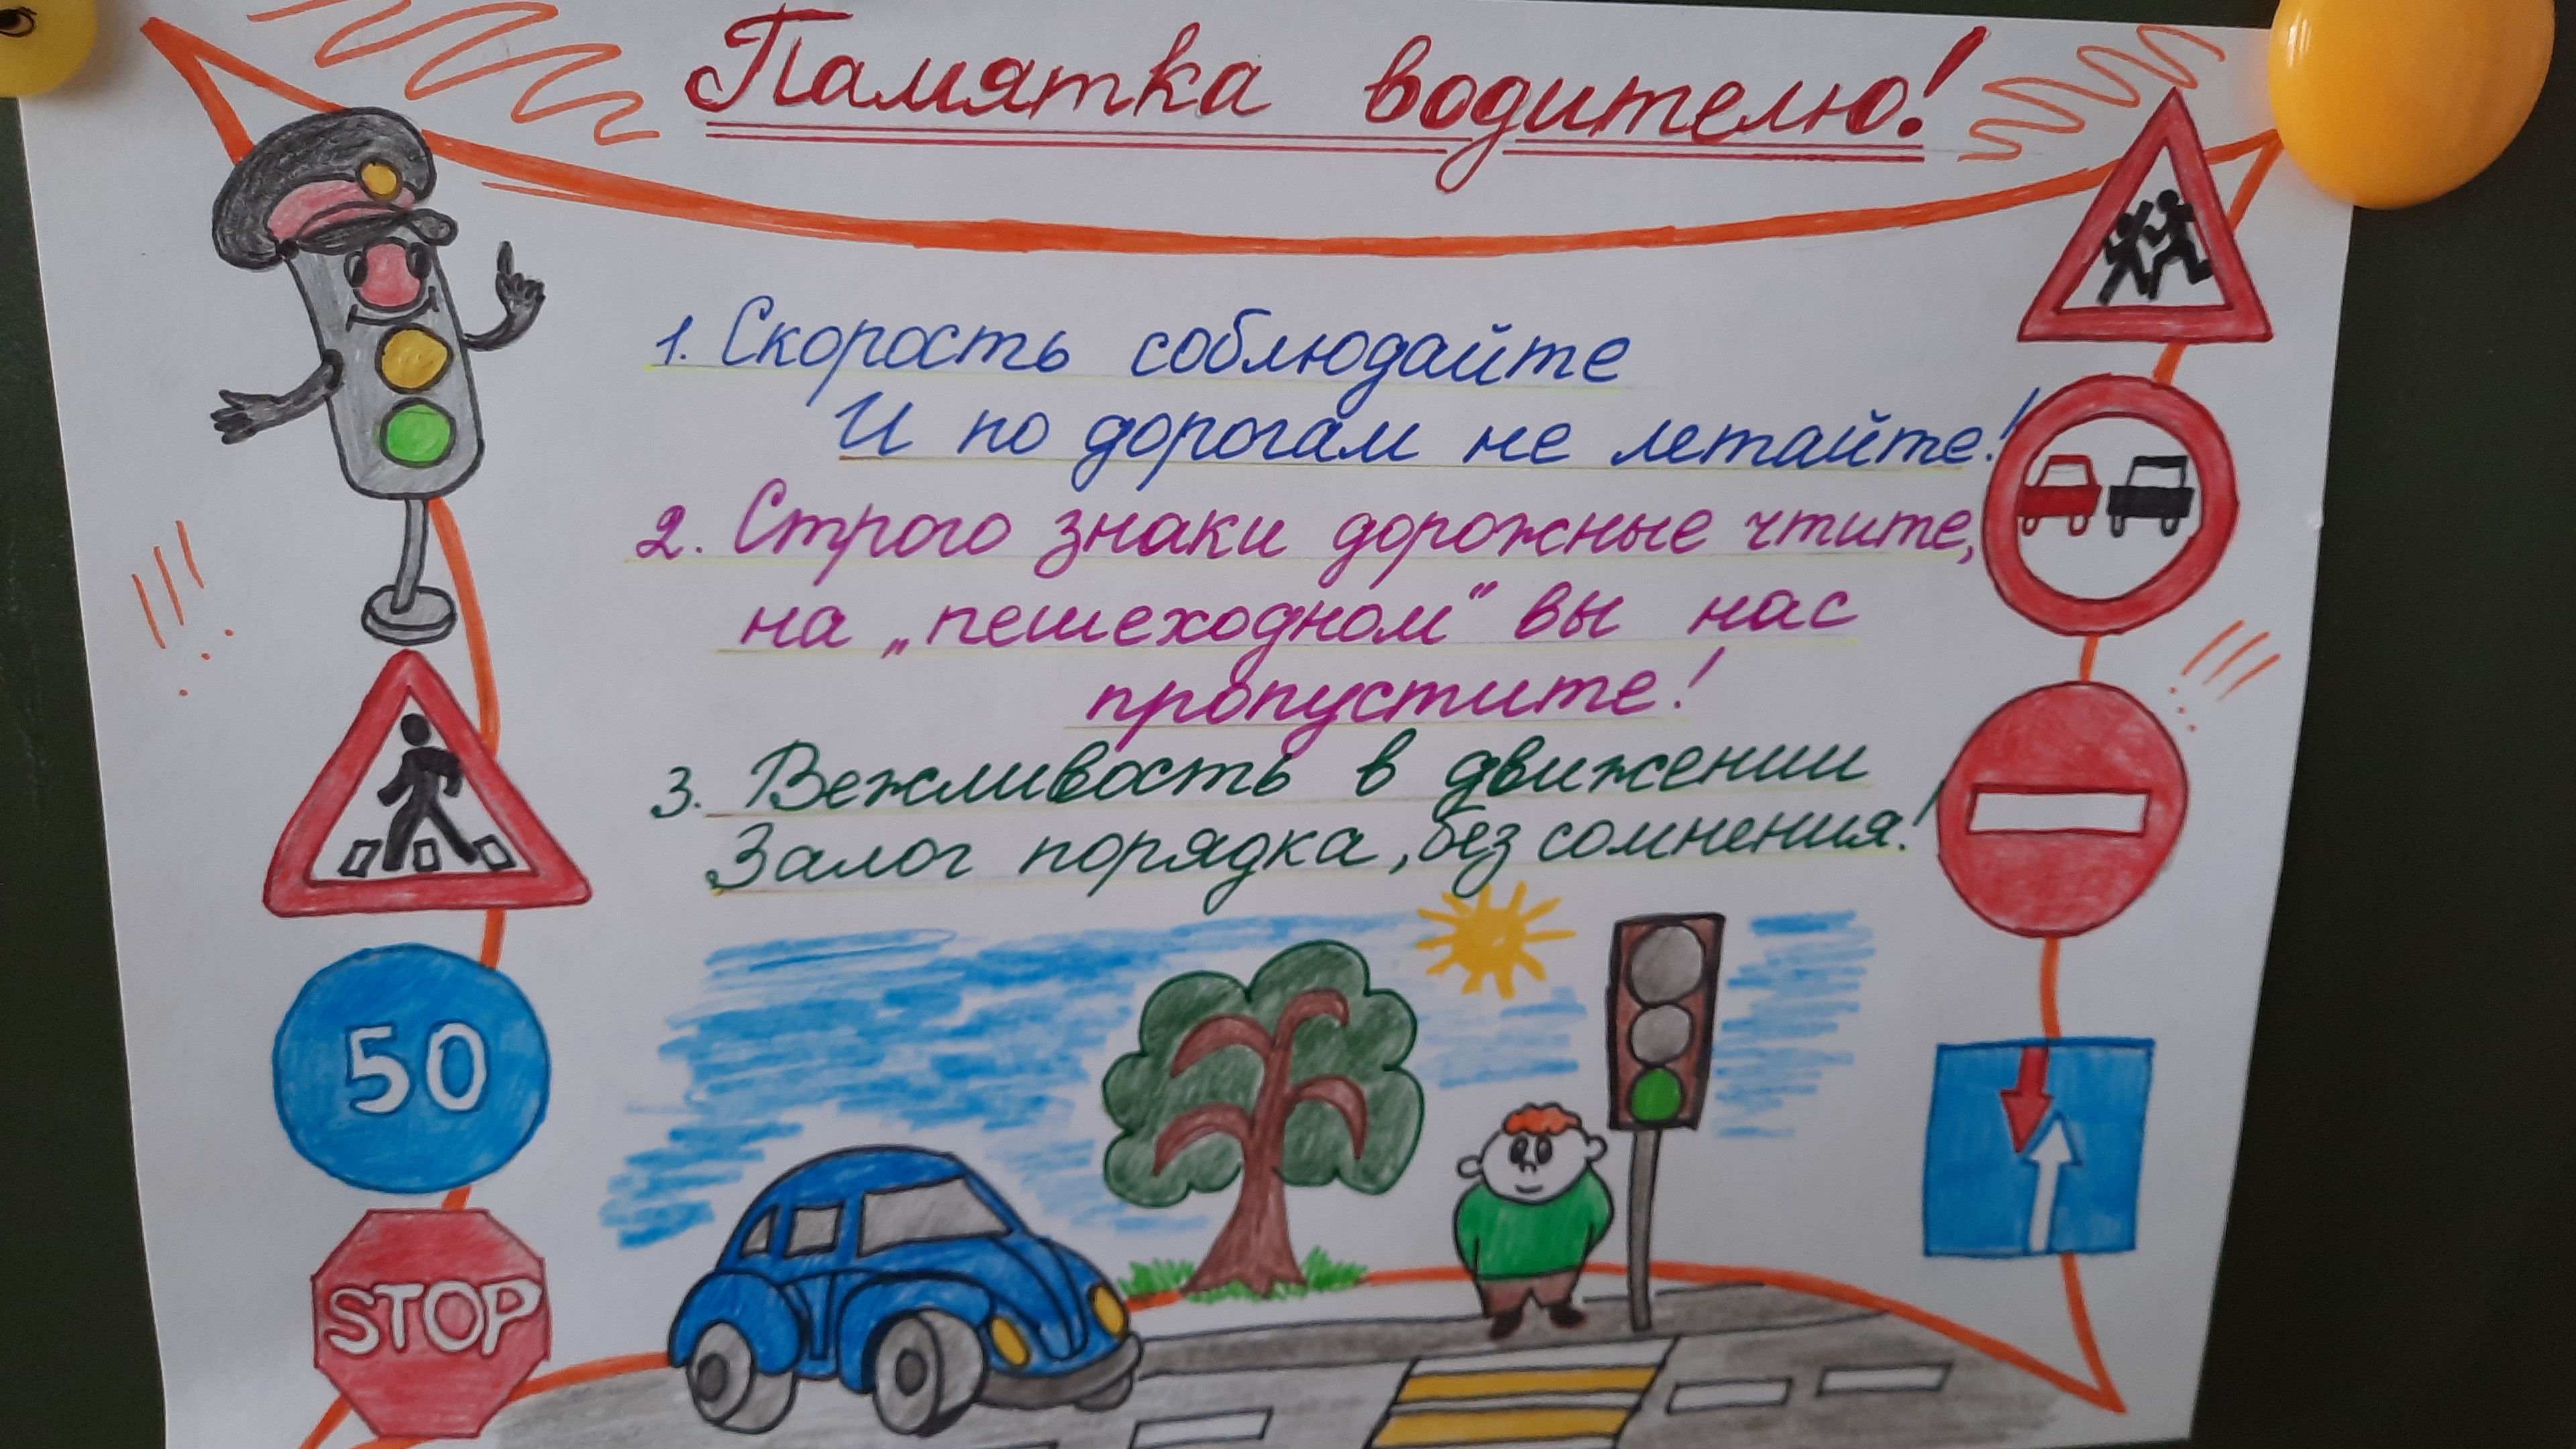 Памятка водителю!
1. Скорость соблюдайте
И по дорогам не летайте!
2. Строго знаки дорожные чтите,
на „пешеходном" вы нас
пропустите!
3. Вежливость в движении
Залог порядка, без сомнения!
50
STOP